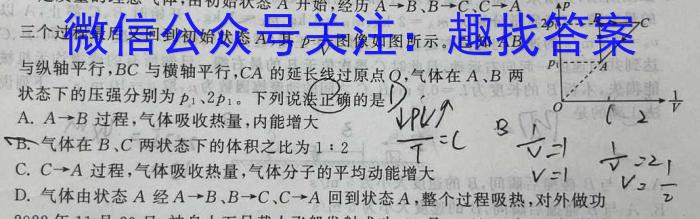 定质量的理想气体,由初始状态 A 开始,经历 A→B、B→C、C→A
三个过程最后又回到初始状态 A,其 p- 图像如图所示。已知 AB
微信公众号关注:趣找答案
与纵轴平行,BC 与横轴平行,CA 的延长线过原点 O,气体在 A、B 两
状态下的压强分别为 p₁、2p₁。下列说法正确的是
A. A→B 过程,气体吸收热量,内能增大
B. 气体在 B、C 两状态下的体积之比为 1∶2
C. C→A 过程,气体吸收热量,气体分子的平均动能增大
D. 气体由状态 A 经 A→B、B→C、C→A 回到状态 A,整个过程吸热,对外做功
p
C
p₁
A
O
1/V
1 2
↓PV↑/T=C
B 1/V=1
V=1
1/V=2
V=1/2